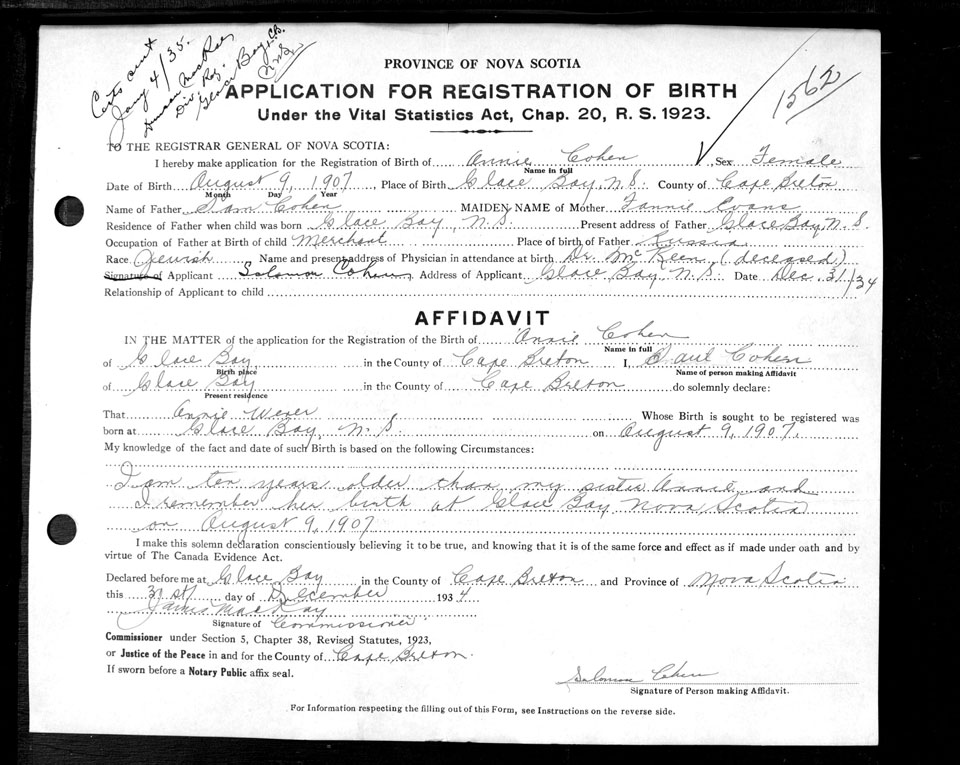 Certs sent
Jany 4/35.
Duncan MacRae,
Div. Reg.
Glace Bay, C.B.
N.S.
1562
PROVINCE OF NOVA SCOTIA
APPLICATION FOR REGISTRATION OF BIRTH
Under the Vital Statistics Act, Chap. 20, R. S. 1923.
TO THE REGISTRAR GENERAL OF NOVA SCOTIA:
I hereby make application for the Registration of Birth of Annie Cohen, Sex Female
Name in full
Date of Birth August 9, 1907 Place of Birth Glace Bay, N.S. County of Cape Breton
Month Day Year
Name of Father Sam Cohen MAIDEN NAME of Mother Fannie Evans
Residence of Father when child was born Glace Bay, N.S. Present address of Father Glace Bay, N.S.
Occupation of Father at Birth of child Merchant Place of birth of Father Russia
Race Jewish Name and present address of Physician in attendance at birth Dr. McKeen, (deceased)
Signature of Applicant Solomon Cohen Address of Applicant Glace Bay, N.S. Date Dec. 31/34
Relationship of Applicant to child
AFFIDAVIT
IN THE MATTER of the application for the Registration of the Birth of Annie Cohen
Name in full
of Glace Bay in the County of Cape Breton I, Saul Cohen
Birth place Name of person making Affidavit
of Glace Bay in the County of Cape Breton do solemnly declare:
Present residence
That Annie Wexer Whose Birth is sought to be registered was
born at Glace Bay, N.S. on August 9, 1907.
My knowledge of the fact and date of such Birth is based on the following Circumstances:
I am ten years older than my sister Annie, and
I remember her birth at Glace Bay Nova Scotia
on August 9, 1907
I make this solemn declaration conscientiously believing it to be true, and knowing that it is of the same force and effect as if made under oath and by
virtue of The Canada Evidence Act.
Declared before me at Glace Bay in the County of Cape Breton and Province of Nova Scotia
this 31st day of December 1934
James MacKay
Signature of Commissioner
Commissioner under Section 5, Chapter 38, Revised Statutes, 1923,
or Justice of the Peace in and for the County of Cape Breton.
If sworn before a Notary Public affix seal.
Solomon Cohen
Signature of Person making Affidavit.
For Information respecting the filling out of this Form, see Instructions on the reverse side.